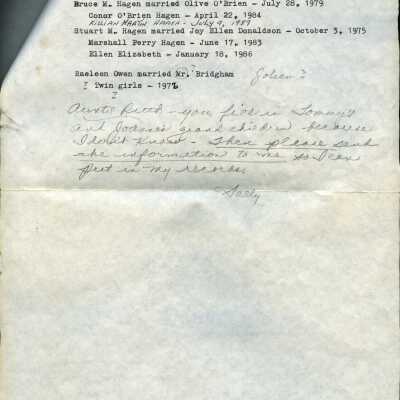 Bruce M. Hagen married Olive O'Brien - July 28, 1979
Conor O'Brien Hagen - April 22, 1984
KILIAN MARTIN HAGEN - July 9, 1989
Stuart M. Hagen married Joy Ellen Donaldson - October 3, 1975
Marshall Perry Hagen - June 17, 1983
Ellen Elizabeth - January 18, 1986
Raeleen Owen married Mr. Bridgham
? Twin girls - 197
Auntie Ruth - you fill in Tommy's
And Joanne's grand children because
I don't know - Then please send
the information to me so I can
put in my records
Sally